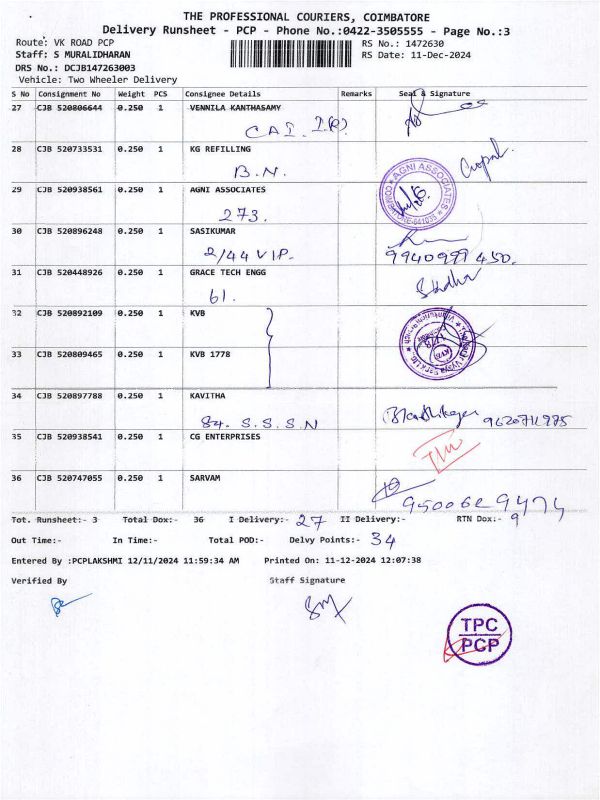 THE PROFESSIONAL COURIERS, COIMBATORE
Delivery Runsheet - PCP - Phone No.:0422-3505555 - Page No.:3
Route: VK ROAD PCP
RS No.: 1472630
Staff: S MURALIDHARAN
RS Date: 11-Dec-2024
DRS No.: DCJB147263003
Vehicle: Two Wheeler Delivery
S No Consignment No Weight PCS Consignee Details Remarks Seal & Signature
27 CJB 520806644 0.250 1 VENNILA KANTHASAMY
28 CJB 520733531 0.250 1 KG REFILLING
B.N. Gopal.
29 CJB 520938561 0.250 1 AGNI ASSOCIATES
273. AGNI ASSOCIATES
30 CJB 520896248 0.250 1 SASIKUMAR
2/44 VIP. 9940999450.
31 CJB 520448926 0.250 1 GRACE TECH ENGG
61.
32 CJB 520892109 0.250 1 KVB
33 CJB 520809465 0.250 1 KVB 1778
34 CJB 520897788 0.250 1 KAVITHA
84. S.S.S.N
35 CJB 520938541 0.250 1 CG ENTERPRISES
36 CJB 520747055 0.250 1 SARVAM
Tot. Runsheet:- 3 Total Dox:- 36 I Delivery:- 27 II Delivery:- RTN Dox:- 9
Out Time:- In Time:- Total POD:- Delvy Points:- 34
Entered By :PCPLAKSHMI 12/11/2024 11:59:34 AM Printed On: 11-12-2024 12:07:38
Verified By Staff Signature
TPC
PCP